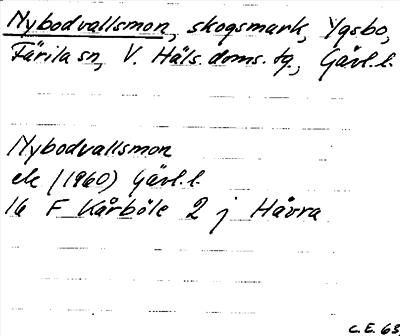 Nybodvallsmon, skogsmark, Ygsbo,
Färila sn, V. Häls. doms. tg., Gävl. l.
Nybodvallsmon
ek (1960) Gävl. l.
16 F Kårböle 2 j Håvra
C.E. 63